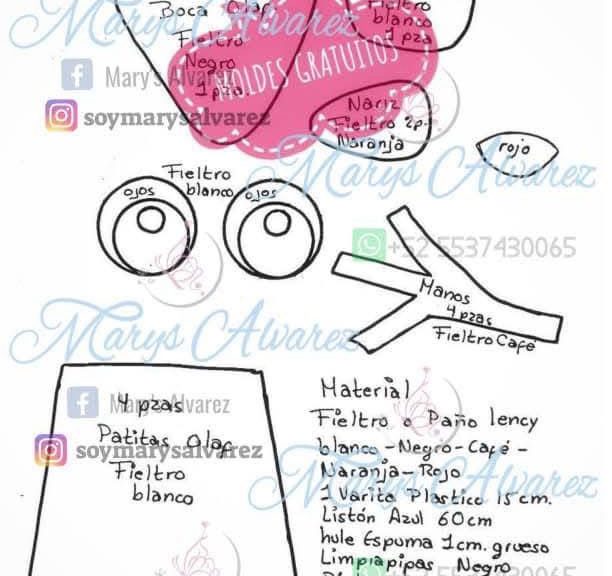 Marys Alvarez
Boca Olaf
Fieltro
Negro
1 pza
Fieltro
blanco
1 pza
MOLDES GRATUITOS
Mary's Alvarez
soymarysalvarez
Nariz
Fieltro 2p.
Naranja
rojo
Marys Alvarez
Fieltro
blanco
ojos
ojos
+52 5537430065
Manos
4 pzas
Fieltro Café
Marys Alvarez
4 pzas
Mary's Alvarez
Patitas Olaf
soymarysalvarez
Fieltro
blanco
Material
Fieltro o Paño lency
blanco-Negro-Café-
Naranja-Rojo
Marys Alvarez
1 Varita Plastico 15 cm.
Listón Azul 60cm
hule Espuma 1cm. grueso
Limpiapipas Negro